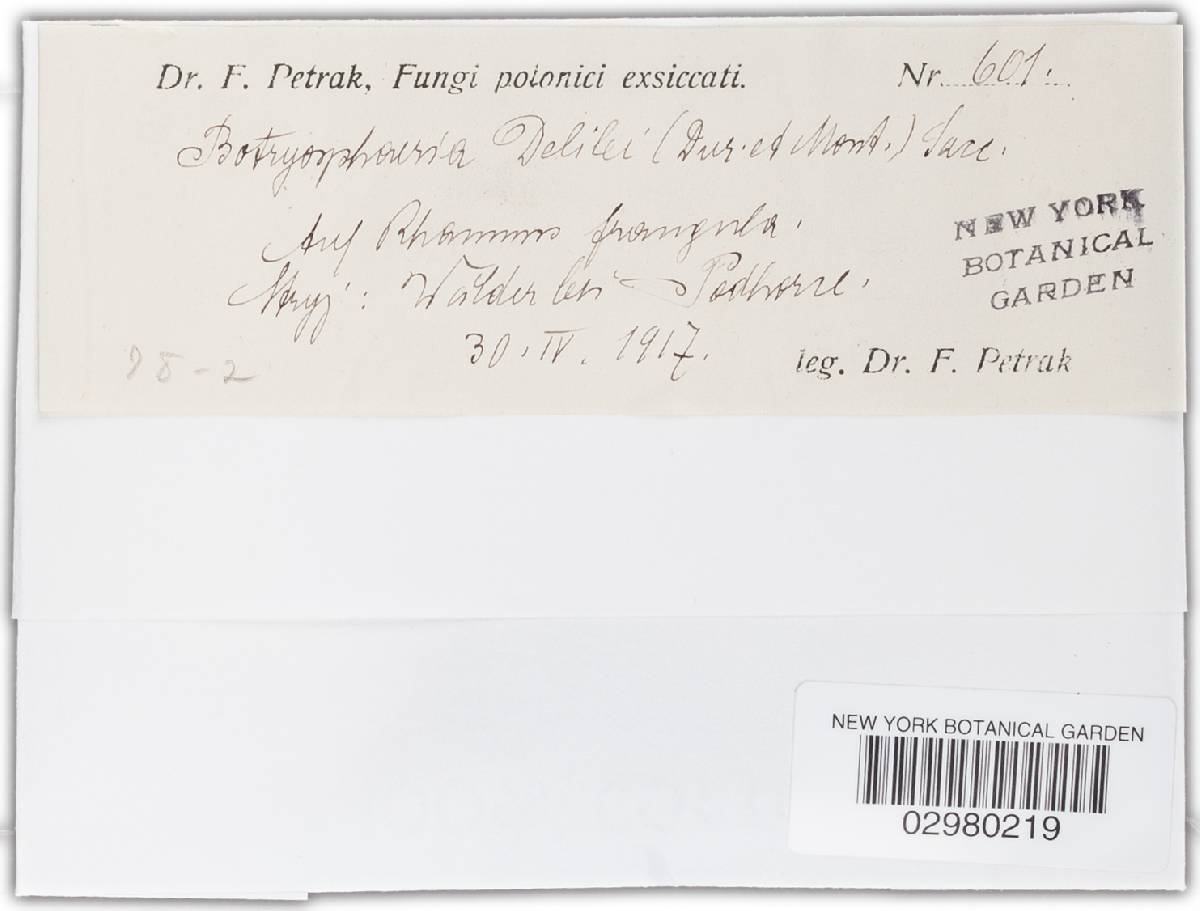 Dr. F. Petrak, Fungi polonici exsiccati. Nr. 601.
Botryosphaeria Delilei (Dur. et Mont.) Sacc.
Auf Rhamnus frangula.
Stryj: Wälder bei Podhorce.
30. IV. 1917. leg. Dr. F. Petrak
NEW YORK
BOTANICAL
GARDEN
NEW YORK BOTANICAL GARDEN
02980219